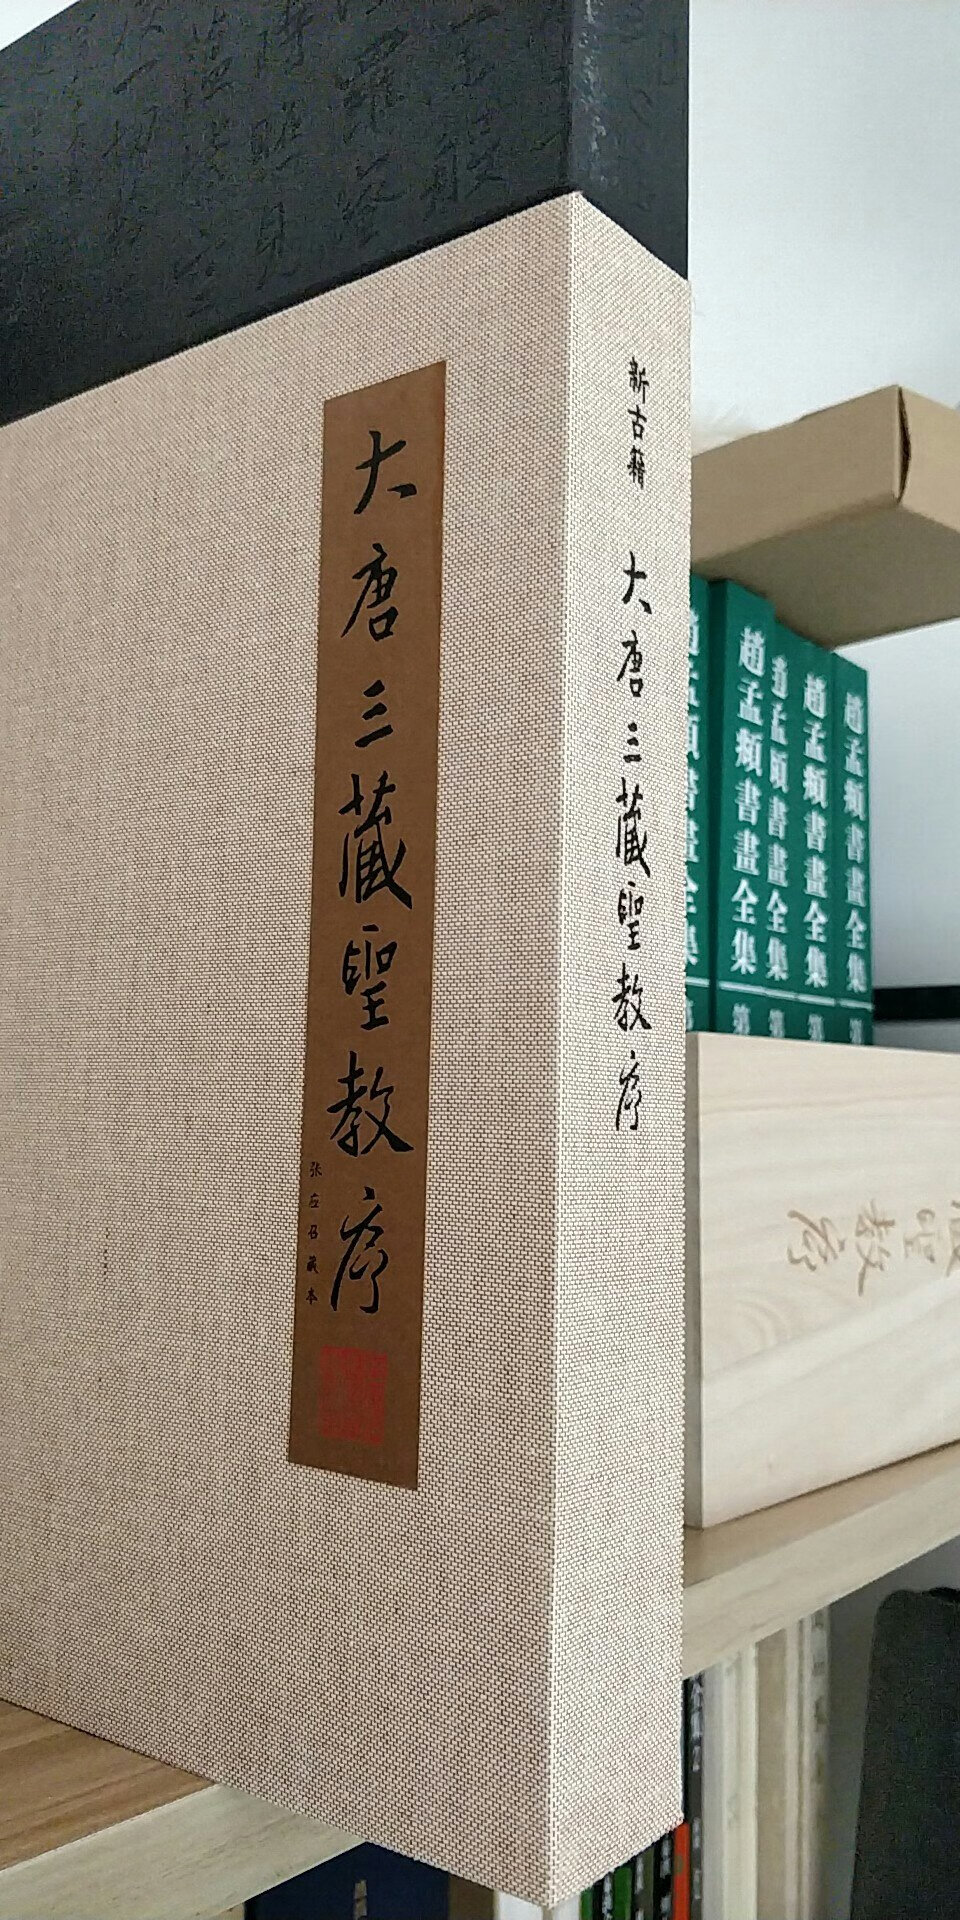 大唐三藏聖教序
张应召藏本
新古籍 大唐三藏聖教序
趙孟頫書畫全集 第
趙孟頫書畫全集 第
趙孟頫書畫全集 第
趙孟頫書畫全集 第
趙孟頫書畫全集 第
藏聖教序